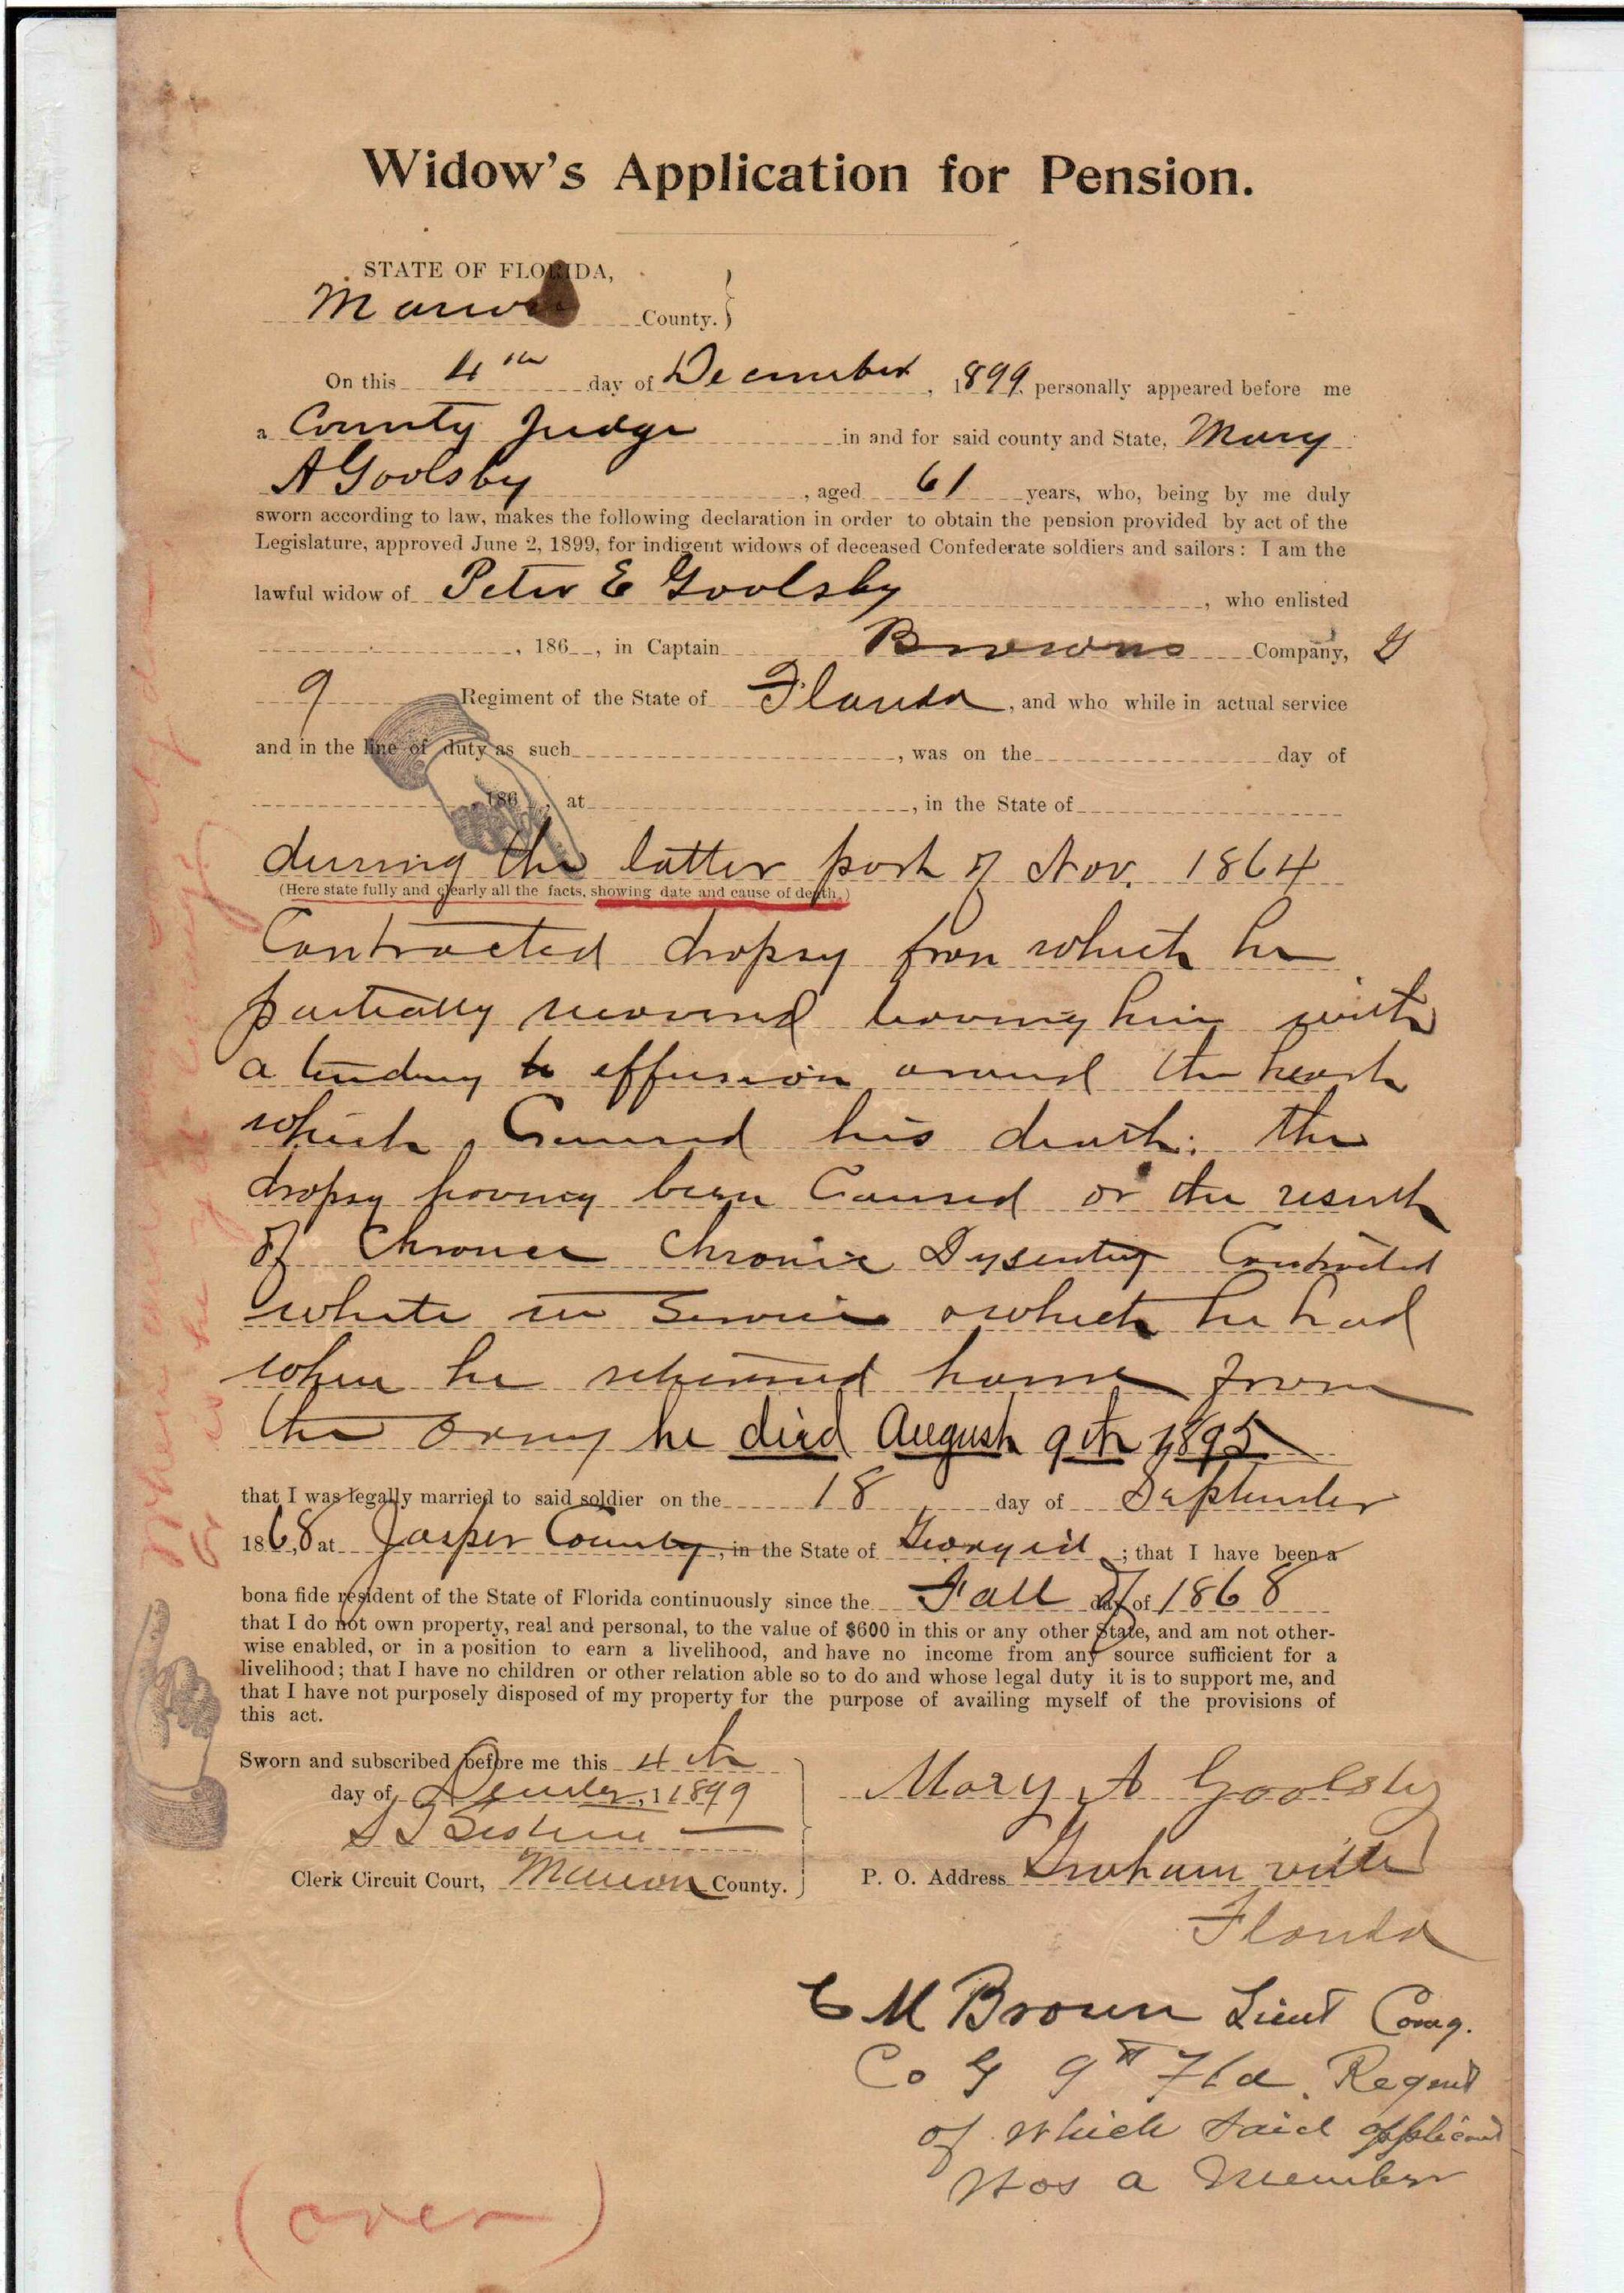 Widow's Application for Pension.
STATE OF FLORIDA,
Marion County.
On this 4th day of December, 1899, personally appeared before me
a County Judge in and for said county and State, Mary
A Goolsby, aged 61 years, who, being by me duly
sworn according to law, makes the following declaration in order to obtain the pension provided by act of the
Legislature, approved June 2, 1899, for indigent widows of deceased Confederate soldiers and sailors: I am the
lawful widow of Peter E Goolsby, who enlisted
, 186 , in Captain Browns Company, G
9 Regiment of the State of Florida, and who while in actual service
and in the line of duty as such , was on the day of
, 186 , at , in the State of
during the latter part of Nov. 1864
(Here state fully and clearly all the facts, showing date and cause of death.)
Contracted dropsy from which he
partially recovered leaving him with
a tendency to effusion around the heart
which Caused his death: the
dropsy having been Caused or the result
of Chronic Chronic Dysentery Contracted
while in Service & which he had
when he returned home from
the army he died August 9th 1895
that I was legally married to said soldier on the 18 day of September
1868, at Jasper County, in the State of Georgia; that I have been a
bona fide resident of the State of Florida continuously since the Fall day of of 1868
that I do not own property, real and personal, to the value of $600 in this or any other State, and am not other-
wise enabled, or in a position to earn a livelihood, and have no income from any source sufficient for a
livelihood; that I have no children or other relation able so to do and whose legal duty it is to support me, and
that I have not purposely disposed of my property for the purpose of availing myself of the provisions of
this act.
Sworn and subscribed before me this 4th
day of December, 1 1899
Clerk Circuit Court, Marion County.
Mary A Goolsby
P. O. Address Grahamville
Florida
C M Brown Lieut Comg.
Co G 9th Fla. Regmt
of which said applicant
was a member
(over)